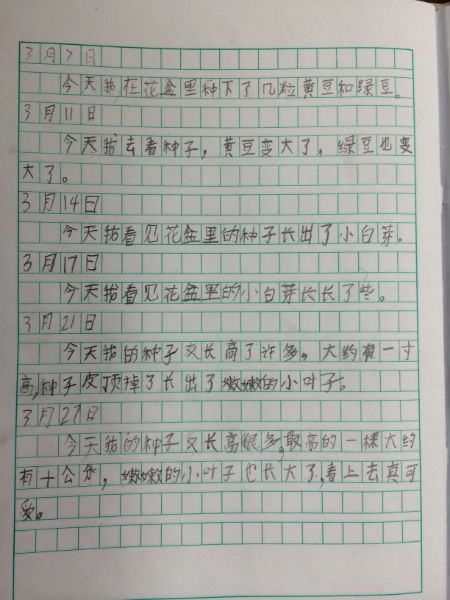 3月7日
今天我在花盆里种下了几粒黄豆和绿豆。
3月11日
今天我去看种子，黄豆变大了，绿豆也变
大了。
3月14日
今天我看见花盆里的种子长出了小白芽。
3月17日
今天我看见花盆里的小白芽长长了些。
3月21日
今天我的种子又长高了许多，大约有一寸
高，种子皮顶掉了长出了嫩嫩的小叶子。
3月27日
今天我的种子又长高很多，最高的一棵大约
有十公分，嫩嫩的小叶子也长大了，看上去真可
爱。